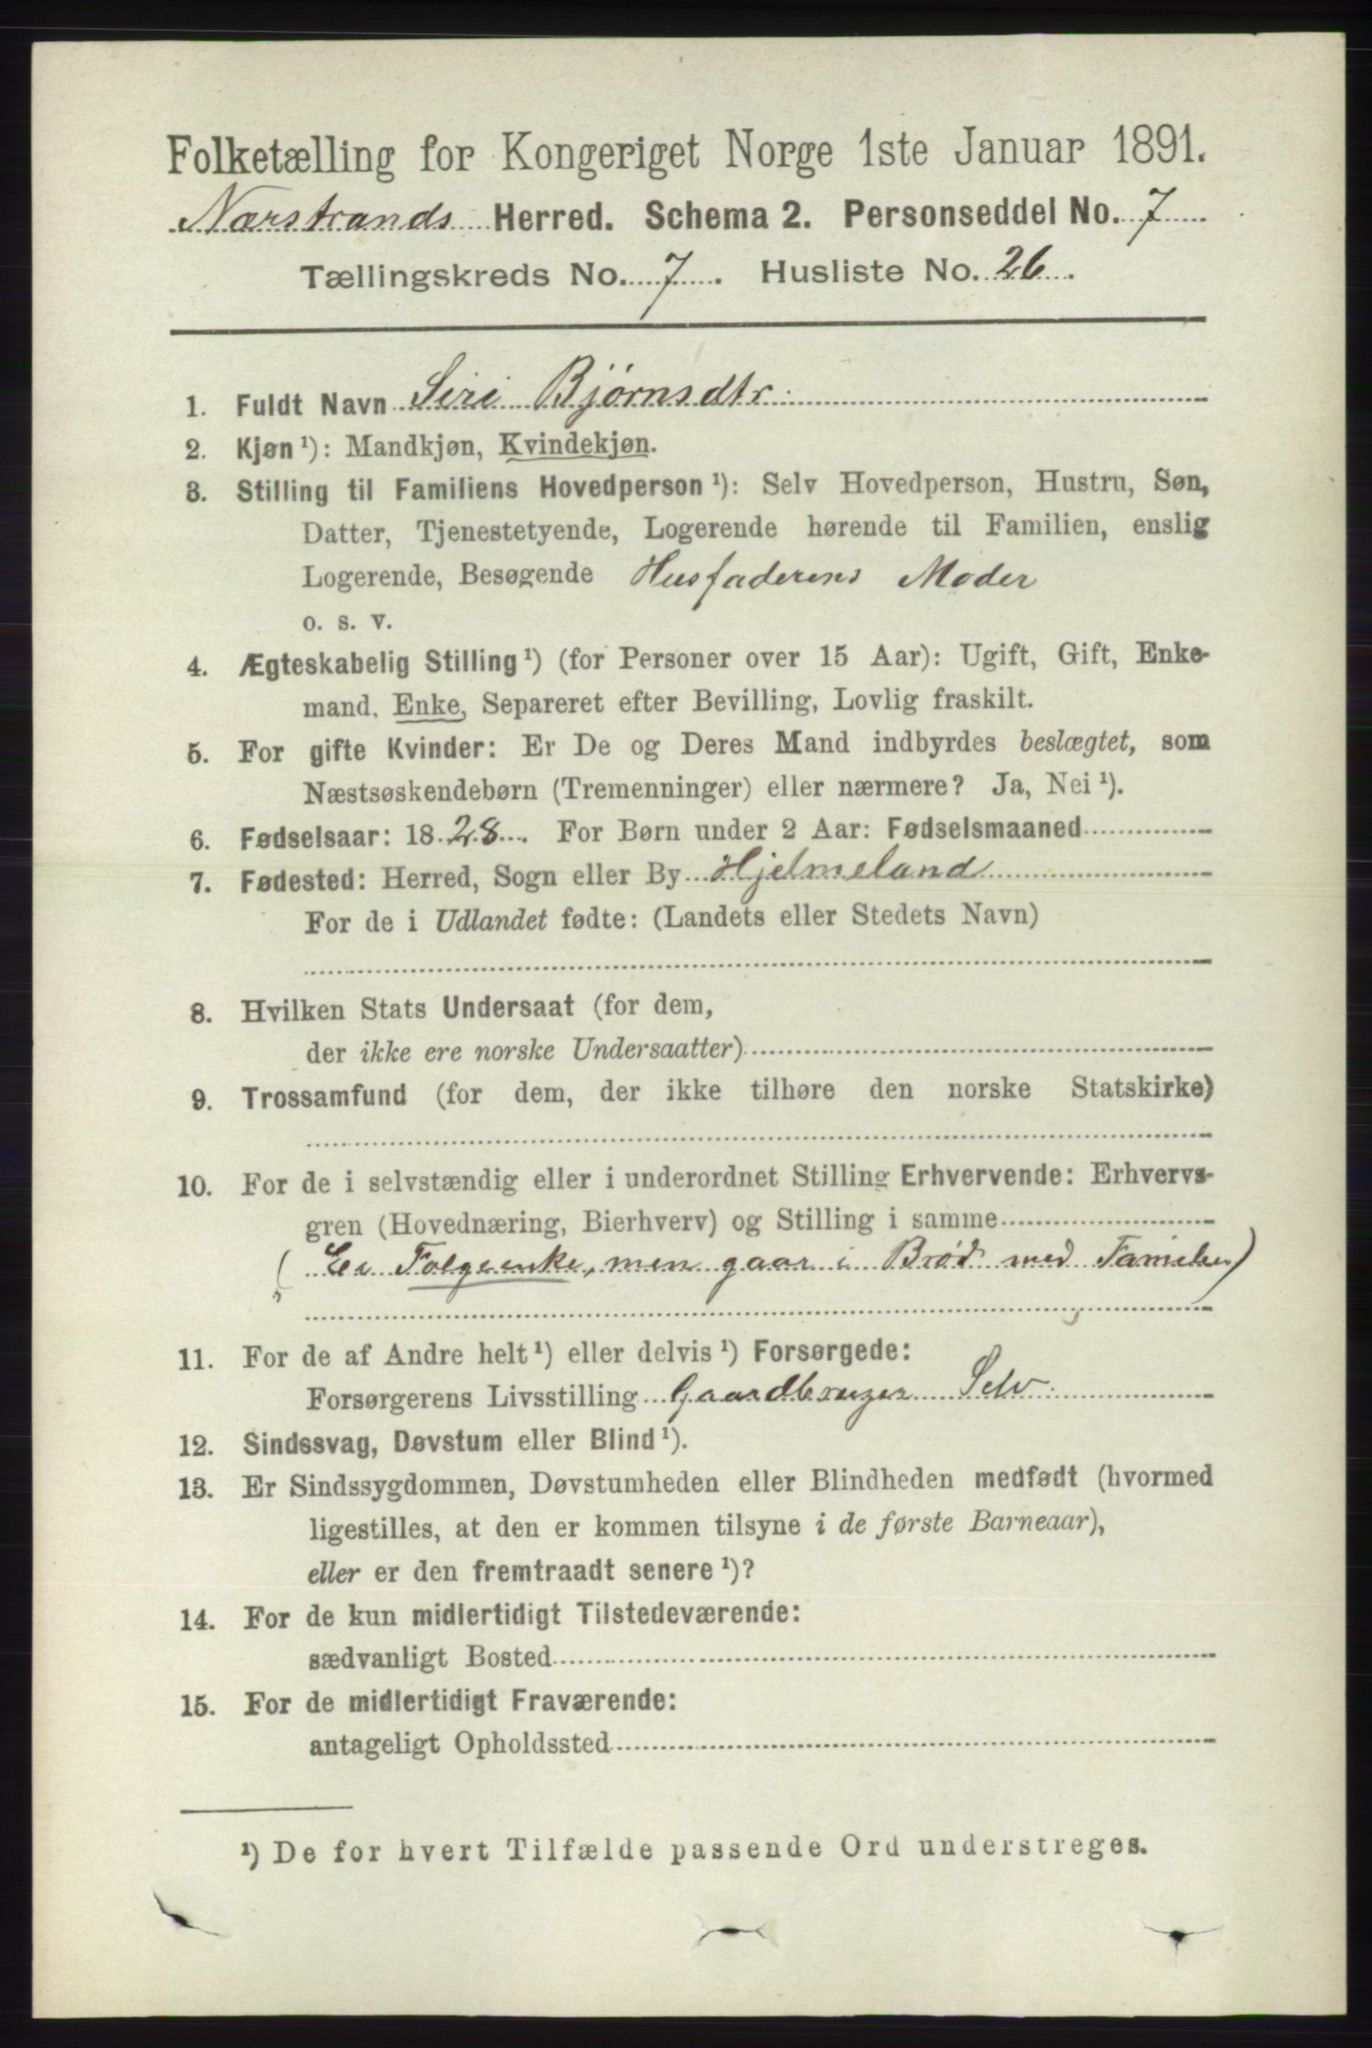 Folketælling for Kongeriget Norge 1ste Januar 1891.
Nærstrands Herred. Schema 2. Personseddel No. 7
Tællingskreds No. 7. Husliste No. 26.
1. Fuldt Navn Siri Bjørnsdtr.
2. Kjøn ¹): Mandkjøn, Kvindekjøn.
3. Stilling til Familiens Hovedperson ¹): Selv Hovedperson, Hustru, Søn,
Datter, Tjenestetyende, Logerende hørende til Familien, enslig
Logerende, Besøgende Husfaderens Moder
o. s. v.
4. Ægteskabelig Stilling ¹) (for Personer over 15 Aar): Ugift, Gift, Enke-
mand, Enke, Separeret efter Bevilling, Lovlig fraskilt.
5. For gifte Kvinder: Er De og Deres Mand indbyrdes beslægtet, som
Næstsøskendebørn (Tremenninger) eller nærmere? Ja, Nei ¹).
6. Fødselsaar: 1828. For Børn under 2 Aar: Fødselsmaaned
7. Fødested: Herred, Sogn eller By Hjelmeland
For de i Udlandet fødte: (Landets eller Stedets Navn)
8. Hvilken Stats Undersaat (for dem,
der ikke ere norske Undersaatter)
9. Trossamfund (for dem, der ikke tilhøre den norske Statskirke)
10. For de i selvstændig eller i underordnet Stilling Erhvervende: Erhvervs-
gren (Hovednæring, Bierhverv) og Stilling i samme
(Er Folgeenke, men gaar i Brød med Familien)
11. For de af Andre helt ¹) eller delvis ¹) Forsørgede:
Forsørgerens Livsstilling Gaardbruger Selv
12. Sindssvag, Døvstum eller Blind ¹).
13. Er Sindssygdommen, Døvstumheden eller Blindheden medfødt (hvormed
ligestilles, at den er kommen tilsyne i de første Barneaar),
eller er den fremtraadt senere ¹)?
14. For de kun midlertidigt Tilstedeværende:
sædvanligt Bosted
15. For de midlertidigt Fraværende:
antageligt Opholdssted
¹) De for hvert Tilfælde passende Ord understreges.